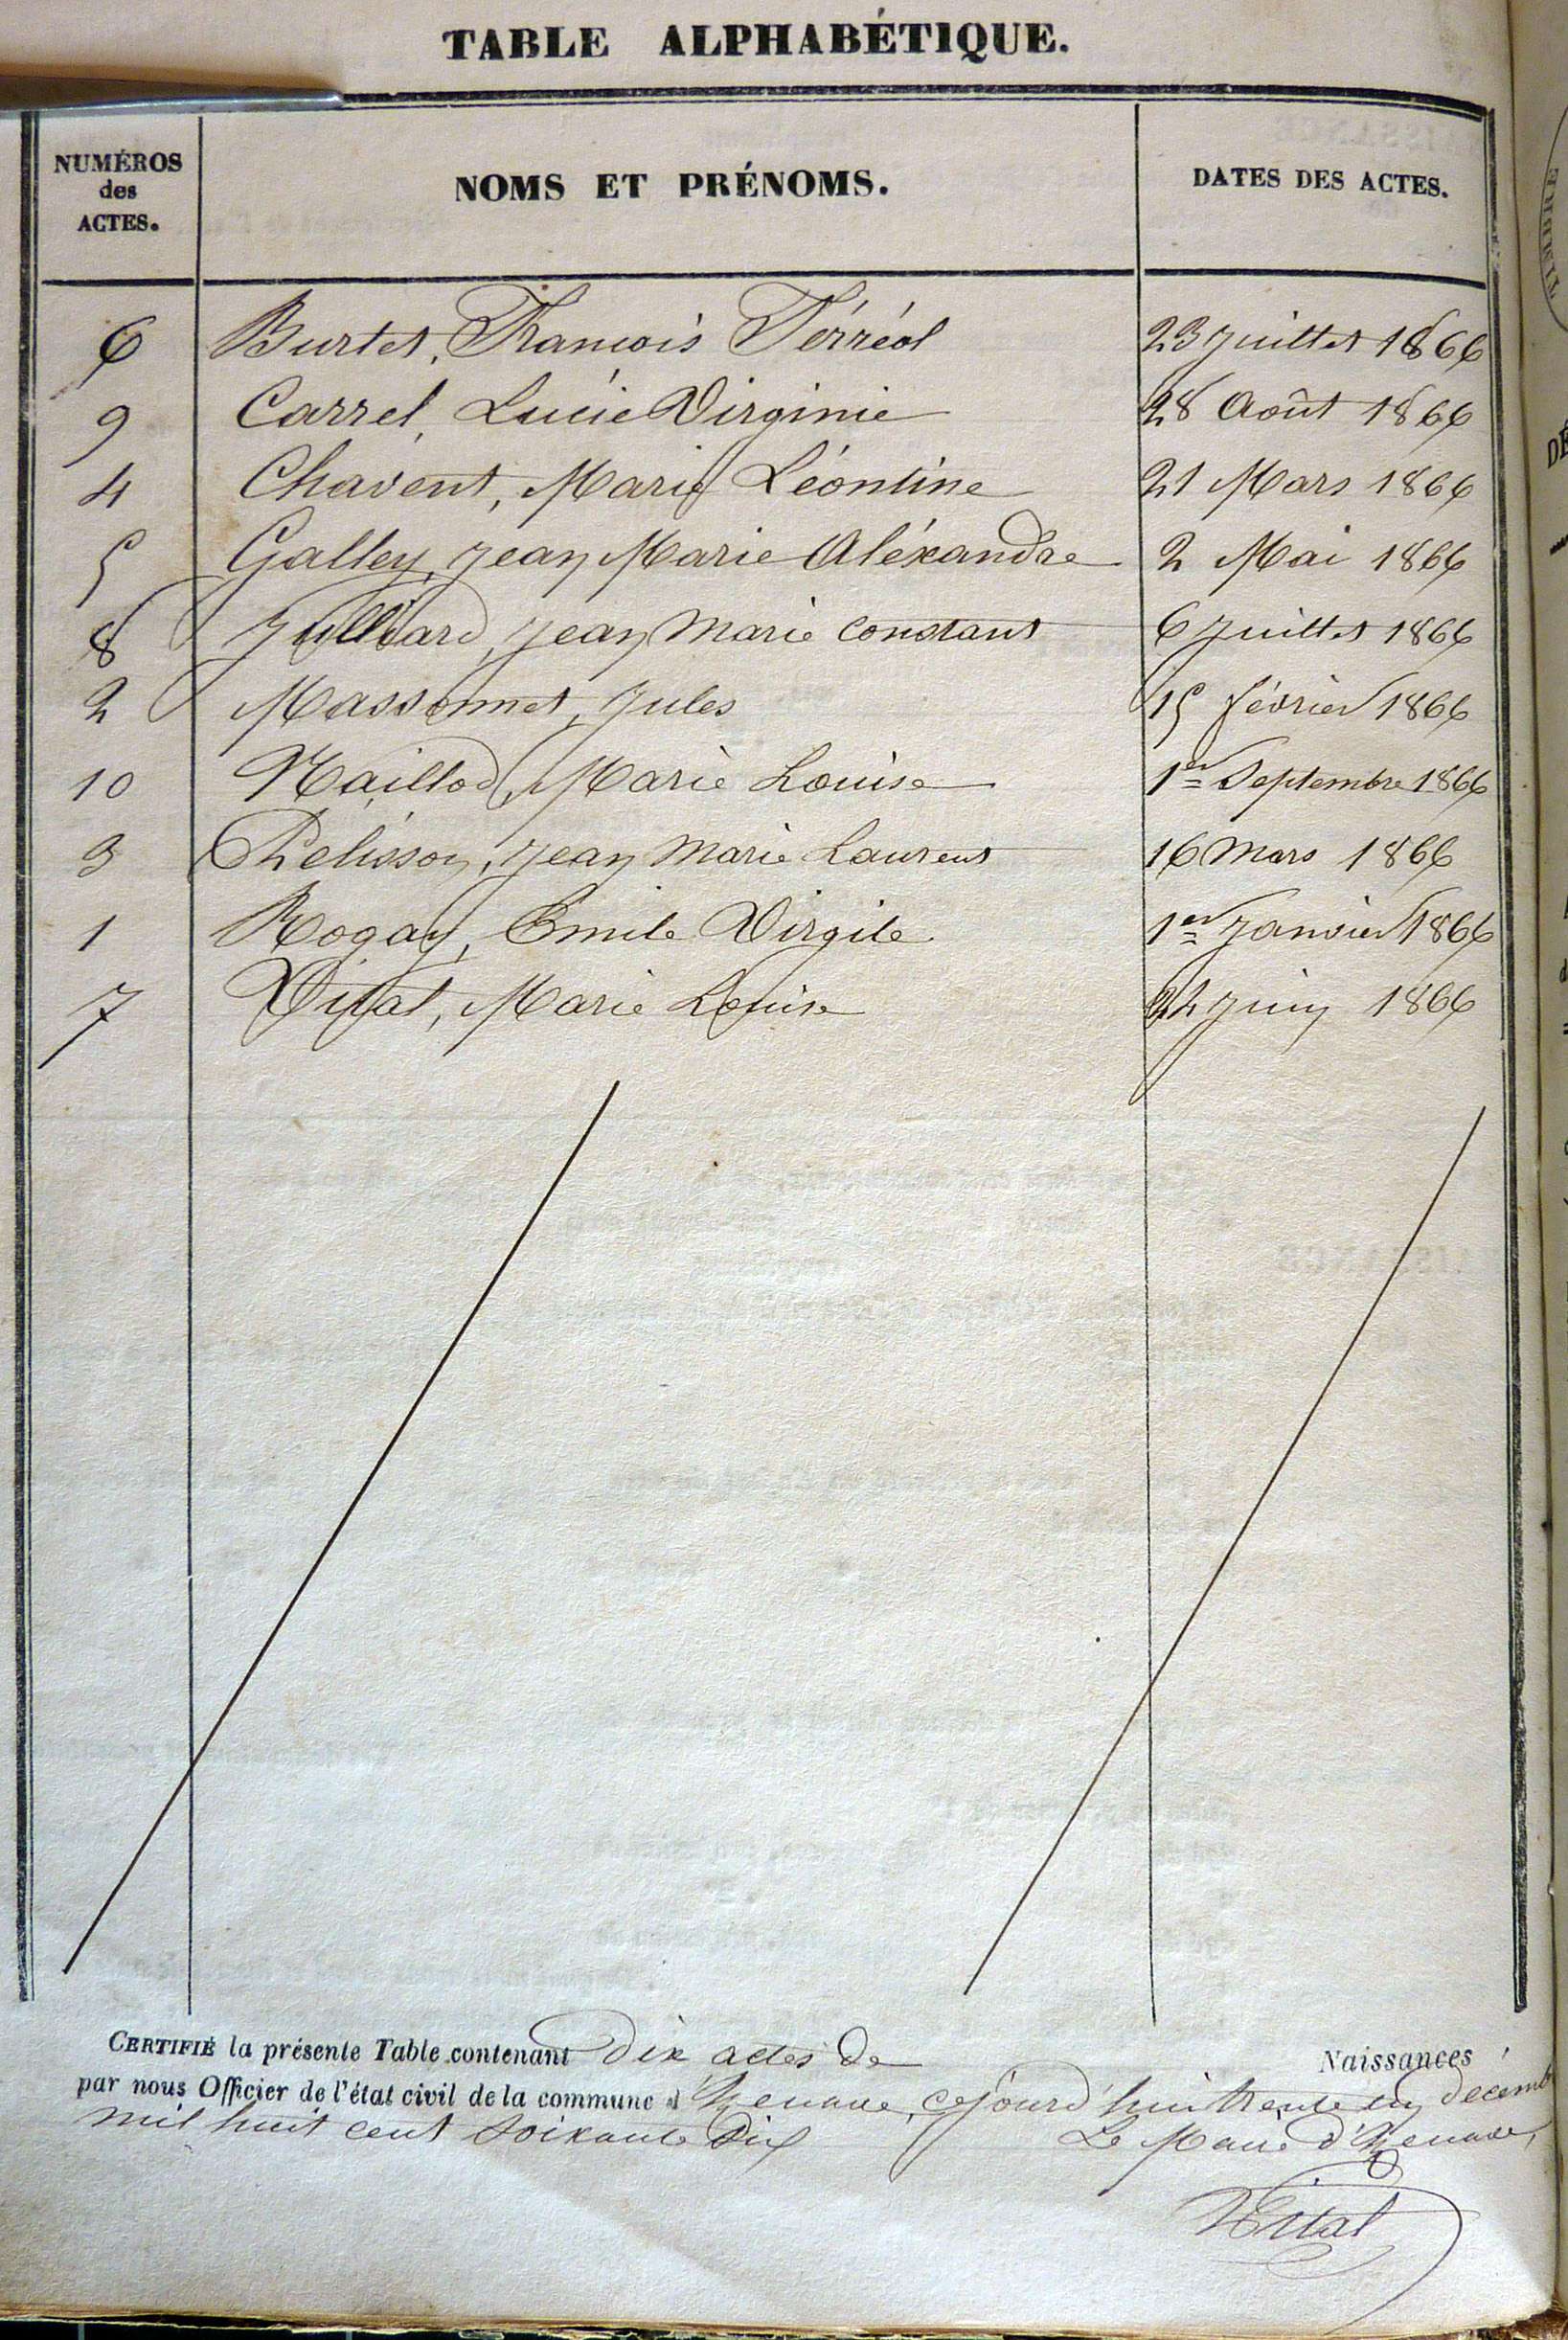 TABLE ALPHABÉTIQUE.
NUMÉROS
des
ACTES.
NOMS ET PRÉNOMS.
DATES DES ACTES.
6 Burtet, François Férréol 23 Juillet 1866
9 Carrel, Lucie Virginie 28 Août 1866
4 Chavent, Marie Léontine 21 Mars 1866
5 Galley, Jean Marie Aléxandre 2 Mai 1866
8 Julliard, Jean Marie Constant 6 Juillet 1866
2 Massonnet, Jules 15 février 1866
10 Naillod, Marie Louise 1er Septembre 1866
3 Pelisson, Jean Marie Laurent 16 Mars 1866
1 Rogay, Emile Virgile 1er Janvier 1866
7 Vital, Marie Louise 24 Juin 1866
CERTIFIÉ la présente Table contenant dix actes de Naissances
par nous Officier de l'état civil de la commune d'Izenave, cejourd'hui trente un décembre
mil huit cent soixante six Le Maire d'Izenave,
Vital